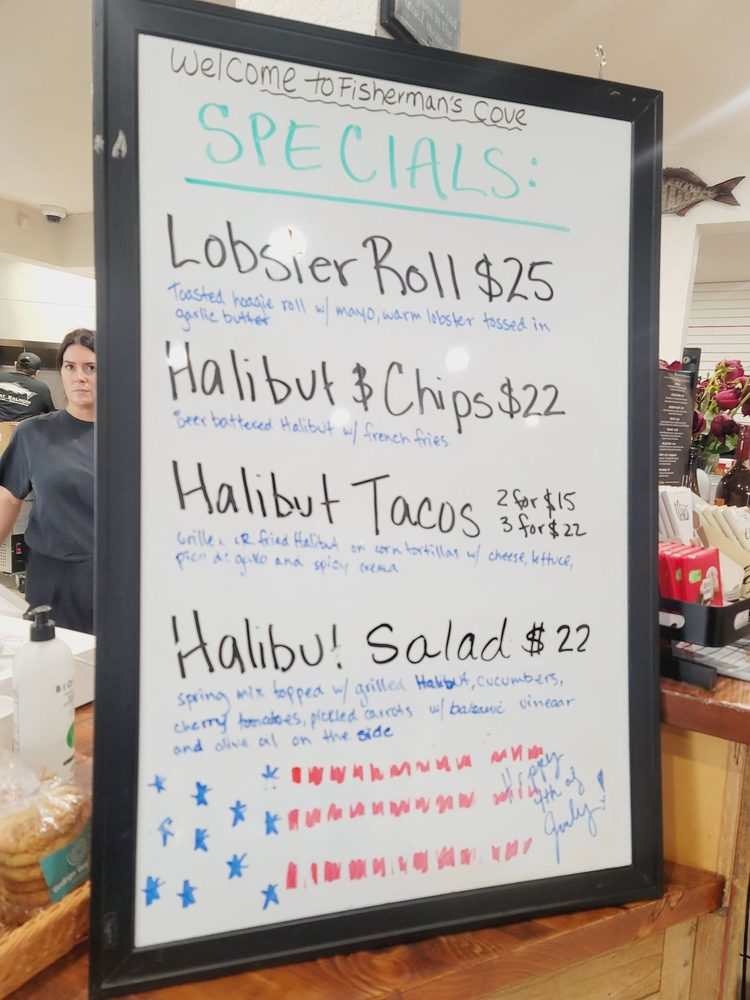 Welcome to Fisherman's Cove
SPECIALS:
Lobster Roll $25
Toasted hoagie roll w/ mayo, warm lobster tossed in
garlic butter
Halibut & Chips $22
Beer battered Halibut w/ french fries.
Halibut Tacos 2 for $15
3 for $22
Grilled OR fried Halibut on corn tortillas w/ cheese, lettuce,
pico de gallo and spicy crema
Halibut Salad $22
spring mix topped w/ grilled Halibut, cucumbers,
cherry tomatoes, pickled carrots w/ balsamic vinegar
and olive oil on the side
Happy
4th of
July!